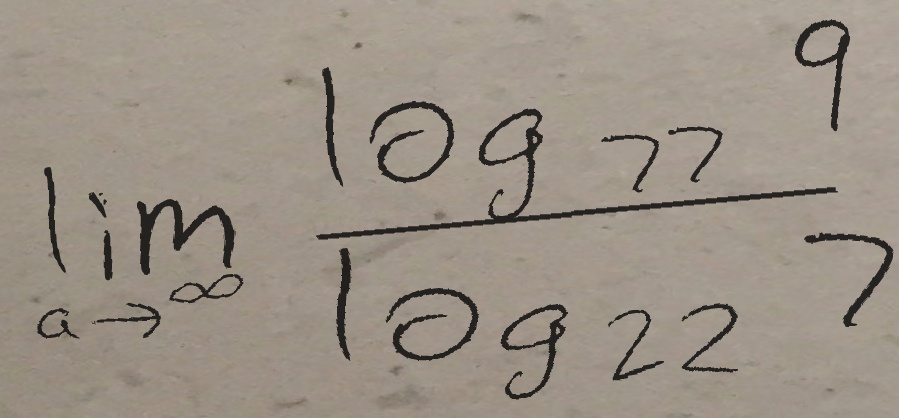 lim a→∞ log 77 9
log 22 7